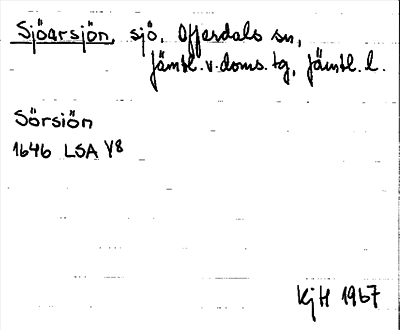 Sjöarsjön, sjö, Offerdals sn,
Jämtl. v. doms. tg, Jämtl. l.
Sörsiön
1646 LSA Y8
KjH 1967